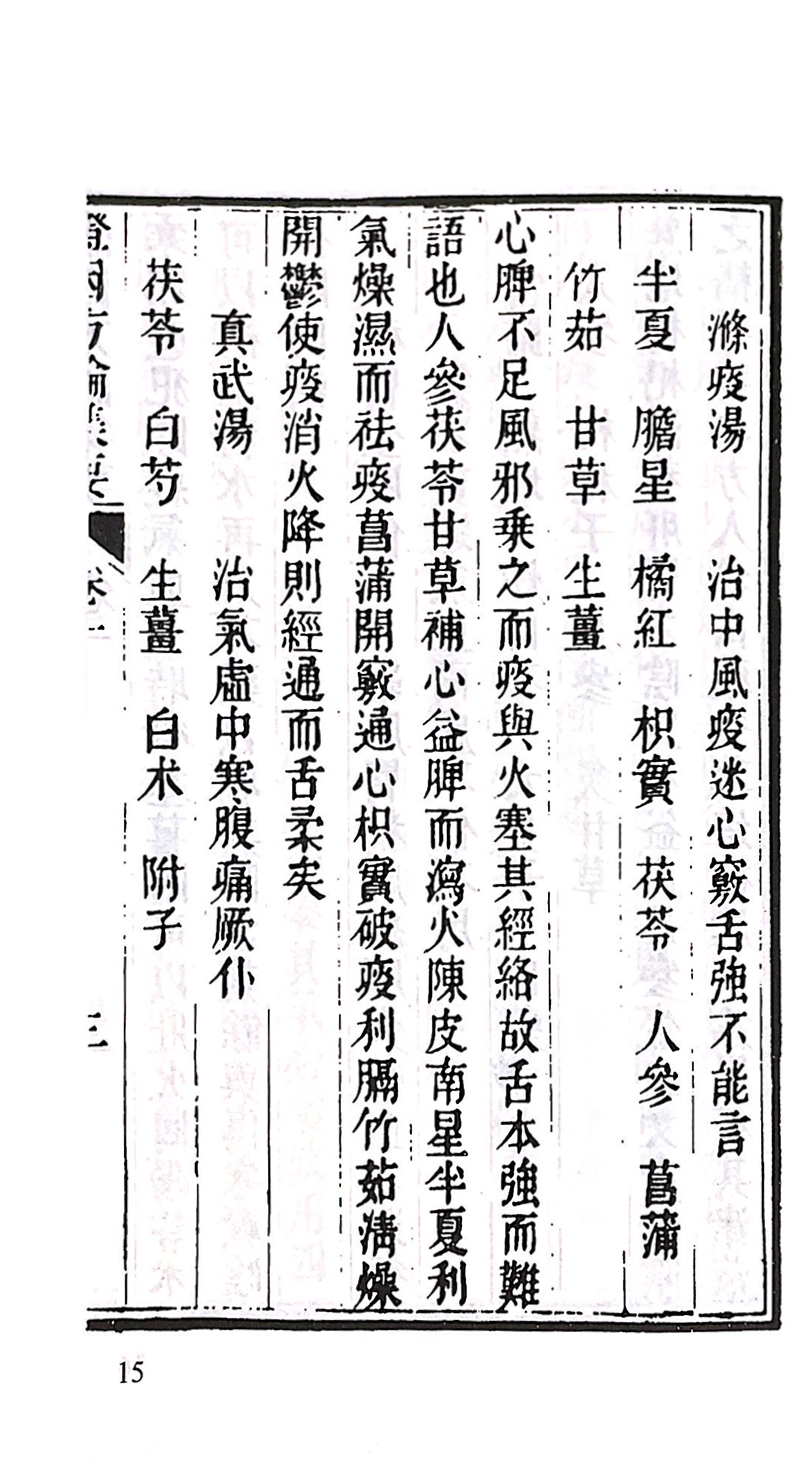 滌痰湯 治中風痰迷心竅舌強不能言
半夏 膽星 橘紅 枳實 茯苓 人參 菖蒲
竹茹 甘草 生薑
心脾不足風邪乗之而痰與火塞其經絡故舌本強而難
語也人參茯苓甘草補心益脾而瀉火陳皮南星半夏利
氣燥濕而祛痰菖蒲開竅通心枳實破痰利膈竹茹清燥
開鬱使痰消火降則經通而舌柔矣
真武湯 治氣虛中寒腹痛厥仆
茯苓 白芍 生薑 白术 附子
證因方論集要 卷一 三
15